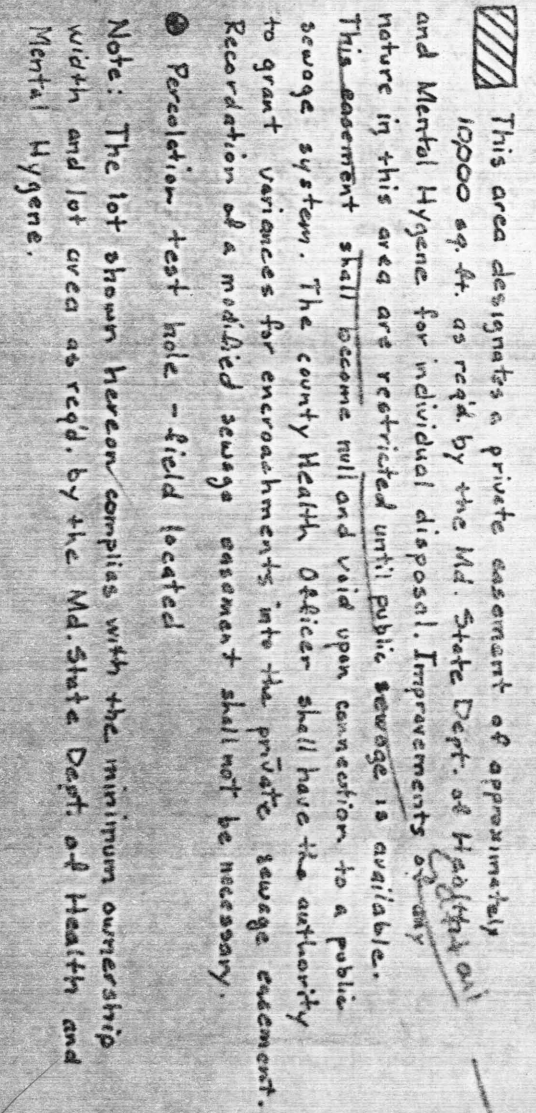 This area designates a private easement of approximately
10,000 sq. ft. as req'd by the Md. State Dept. of Health
and Mental Hygene for individual disposal. Improvements of any
nature in this area are restricted until public sewage is available.
This easement shall become null and void upon connection to a public
sewage system. The county Health Officer shall have the authority
to grant variances for encroachments into the private sewage easement.
Recordation of a modified sewage easement shall not be necessary.
Percolation test hole - field located
Note: The lot shown hereon complies with the minimum ownership
width and lot area as req'd. by the Md. State Dept. of Health and
Mental Hygene.